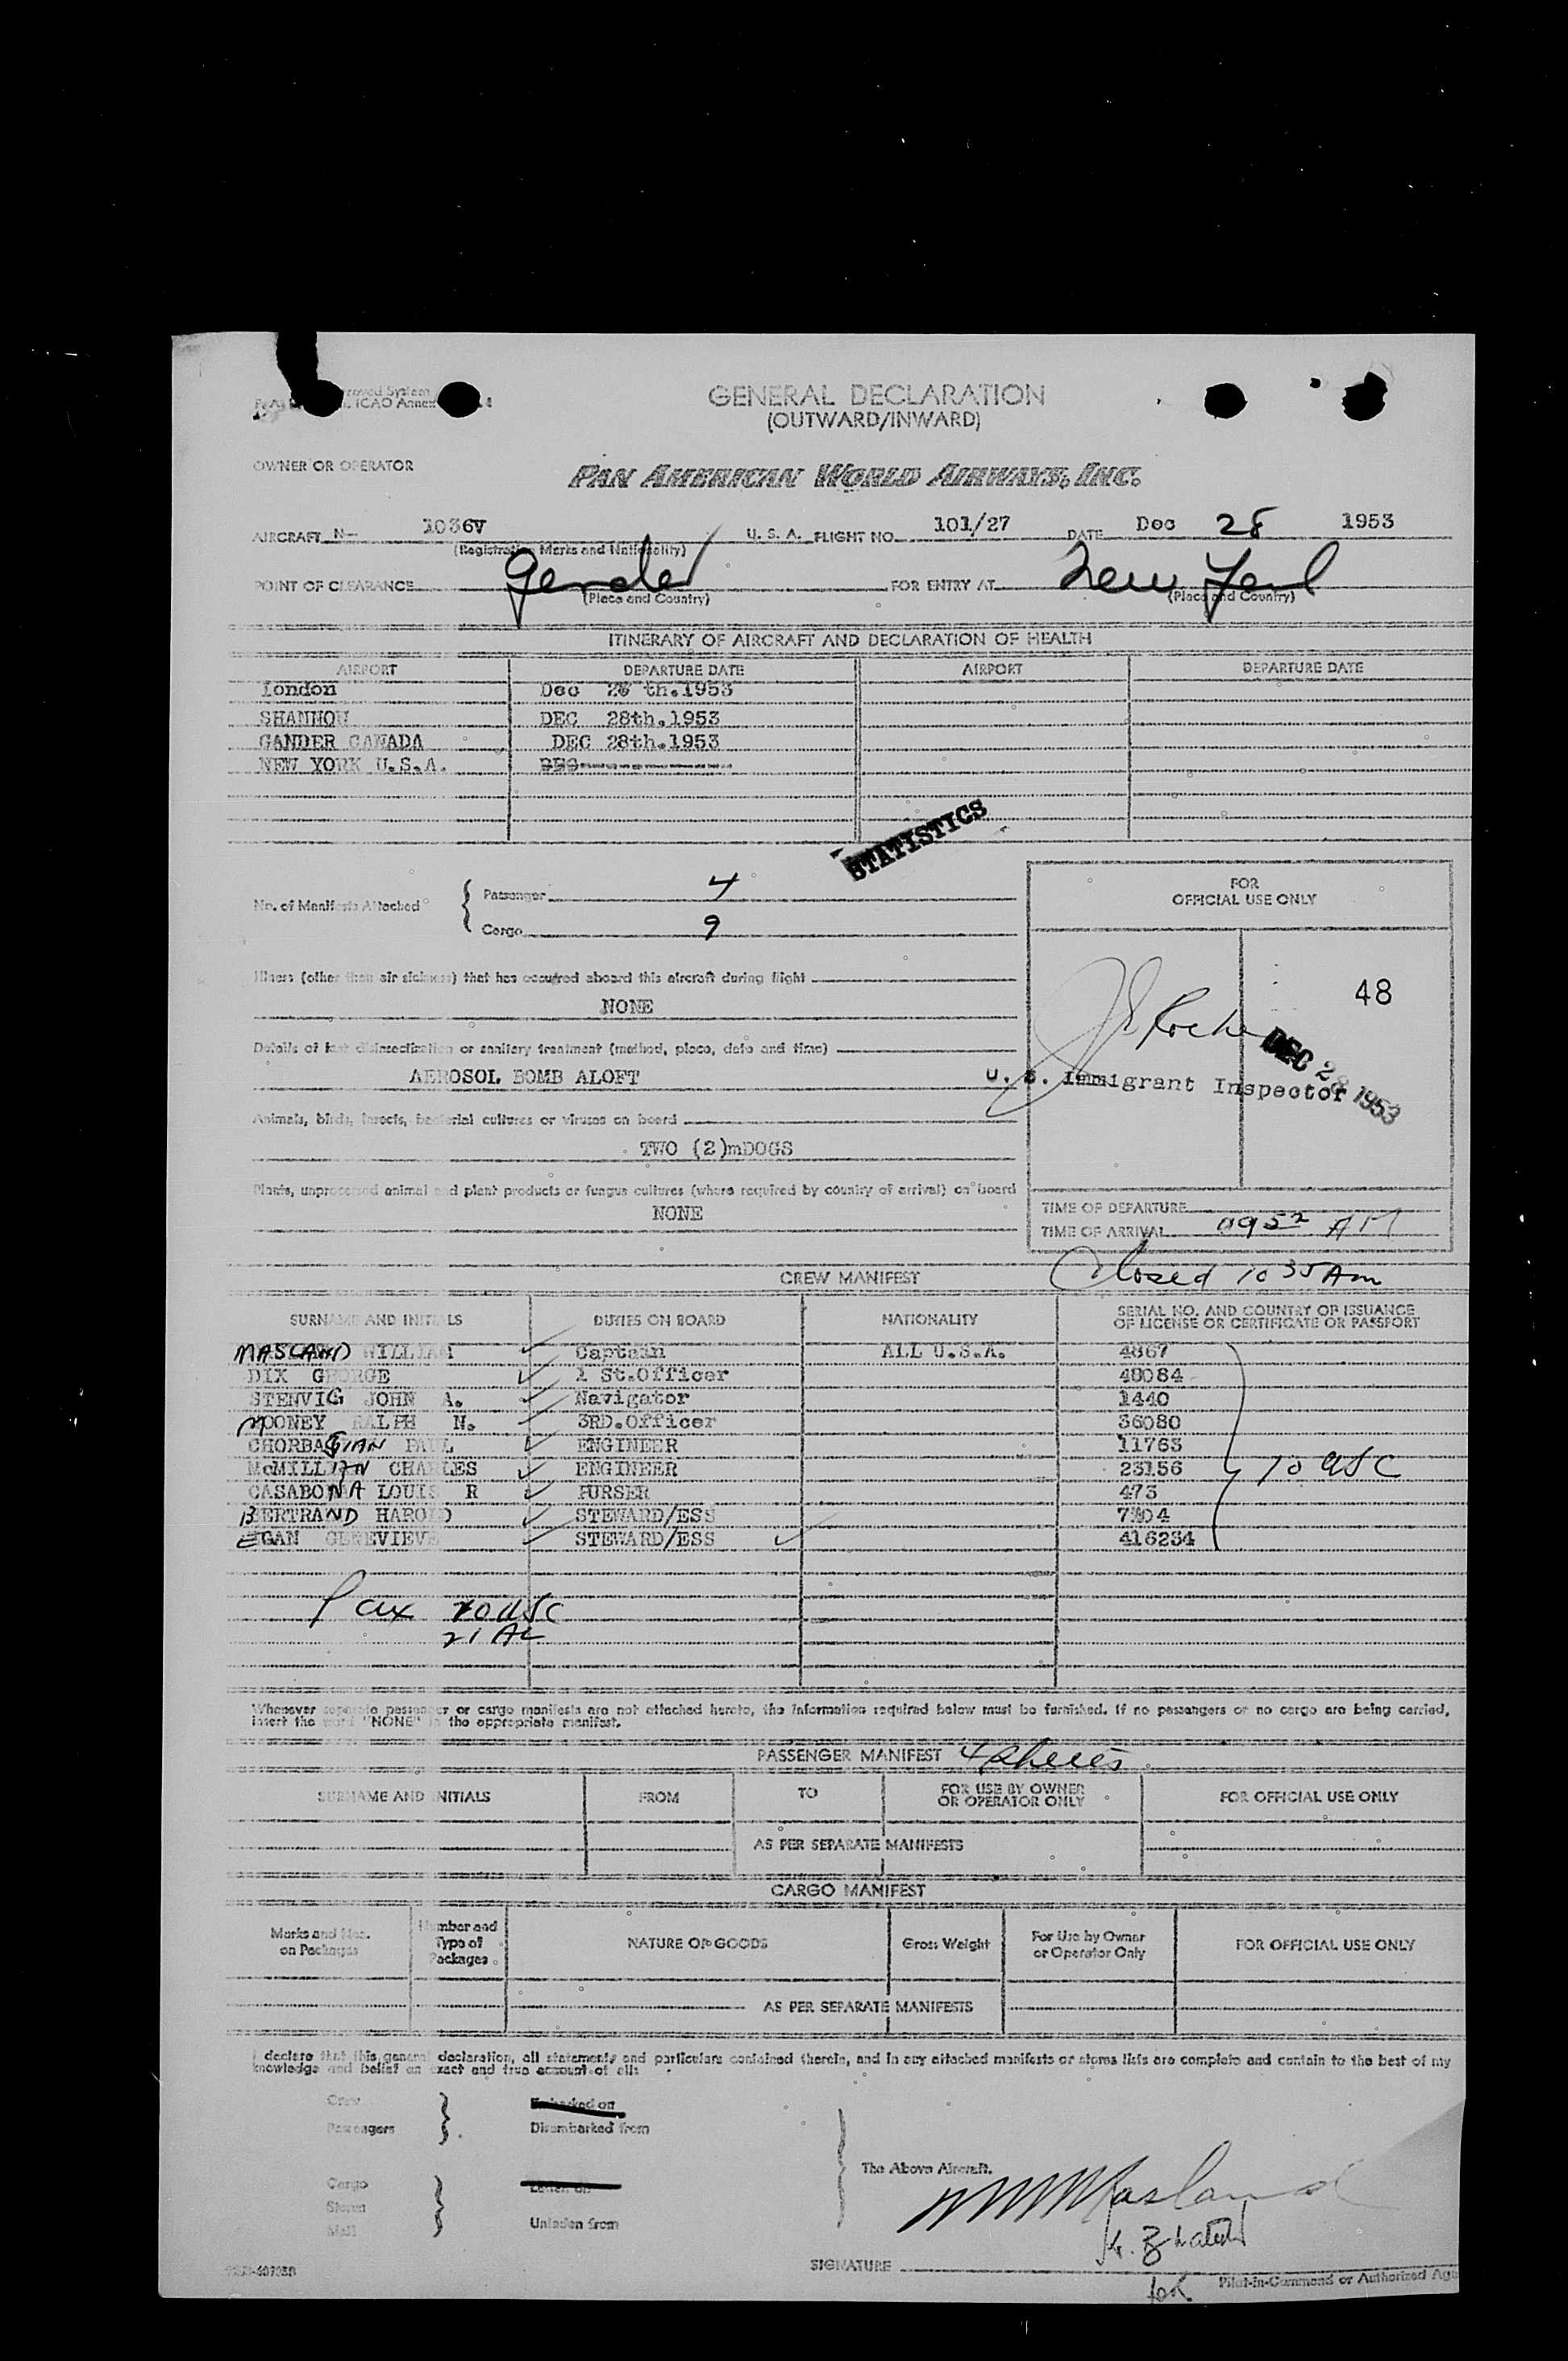 GENERAL DECLARATION
(OUTWARD/INWARD)
OWNER OR OPERATOR
PAN AMERICAN WORLD AIRWAYS, INC.
AIRCRAFT N- 1036V U. S. A. FLIGHT NO. 101/27 DATE Dec 28 1953
(Registration Marks and Nationality)
POINT OF CLEARANCE Gander FOR ENTRY AT New York
(Place and Country) (Place and Country)
ITINERARY OF AIRCRAFT AND DECLARATION OF HEALTH
AIRPORT DEPARTURE DATE AIRPORT DEPARTURE DATE
London Dec th.1953
SHANNON DEC 28th.1953
GANDER CANADA DEC 28th.1953
NEW YORK U.S.A. DEC
STATISTICS
No. of Manifests Attached { Passenger 4
Cargo 9
FOR
OFFICIAL USE ONLY
Illness (other than air sickness) that has occurred aboard this aircraft during flight
NONE
48
Details of last disinsectization or sanitary treatment (method, place, date and time)
AEROSOL BOMB ALOFT
DEC 28 1953
U. S. Immigrant Inspector
Animals, birds, insects, bacterial cultures or viruses on board
TWO (2)mDOGS
Plants, unprocessed animal and plant products or fungus cultures (where required by country of arrival) on board
NONE
TIME OF DEPARTURE
TIME OF ARRIVAL 0952 AM
Closed 10 35 Am
CREW MANIFEST
SURNAME AND INITIALS DUTIES ON BOARD NATIONALITY SERIAL NO. AND COUNTRY OF ISSUANCE
OF LICENSE OR CERTIFICATE OR PASSPORT
MASLAND WILLIAM Captain ALL U.S.A. 4867
DIX GEORGE 1 St.Officer 48084
STENVIG JOHN A. Navigator 1440
MOONEY RALPH N. 3RD.Officer 36080
CHORBAGIAN PAUL ENGINEER 11763
McMILLIAN CHARLES ENGINEER 23156
CASABONA LOUIS R PURSER 473
BERTRAND HAROLD STEWARD/ESS 7304
EGAN GENEVIEVE STEWARD/ESS 416234
10 USC
Pax 70 USC
21 AL
Whenever separate passenger or cargo manifests are not attached hereto, the information required below must be furnished. If no passengers or no cargo are being carried,
insert the word "NONE" in the appropriate manifest.
PASSENGER MANIFEST 4 sheets
SURNAME AND INITIALS FROM TO FOR USE BY OWNER
OR OPERATOR ONLY FOR OFFICIAL USE ONLY
AS PER SEPARATE MANIFESTS
CARGO MANIFEST
Marks and Nos.
on Packages Number and
Type of
Packages NATURE OF GOODS Gross Weight For Use by Owner
or Operator Only FOR OFFICIAL USE ONLY
AS PER SEPARATE MANIFESTS
I declare that this general declaration, all statements and particulars contained therein, and in any attached manifests or stores lists are complete and contain to the best of my
knowledge and belief an exact and true account of all:
Crew Embarked on
Passengers Disembarked from
The Above Aircraft.
Cargo Laden on
Stores
Mail Unladen from
Masland
SIGNATURE
for Pilot-in-Command or Authorized Age